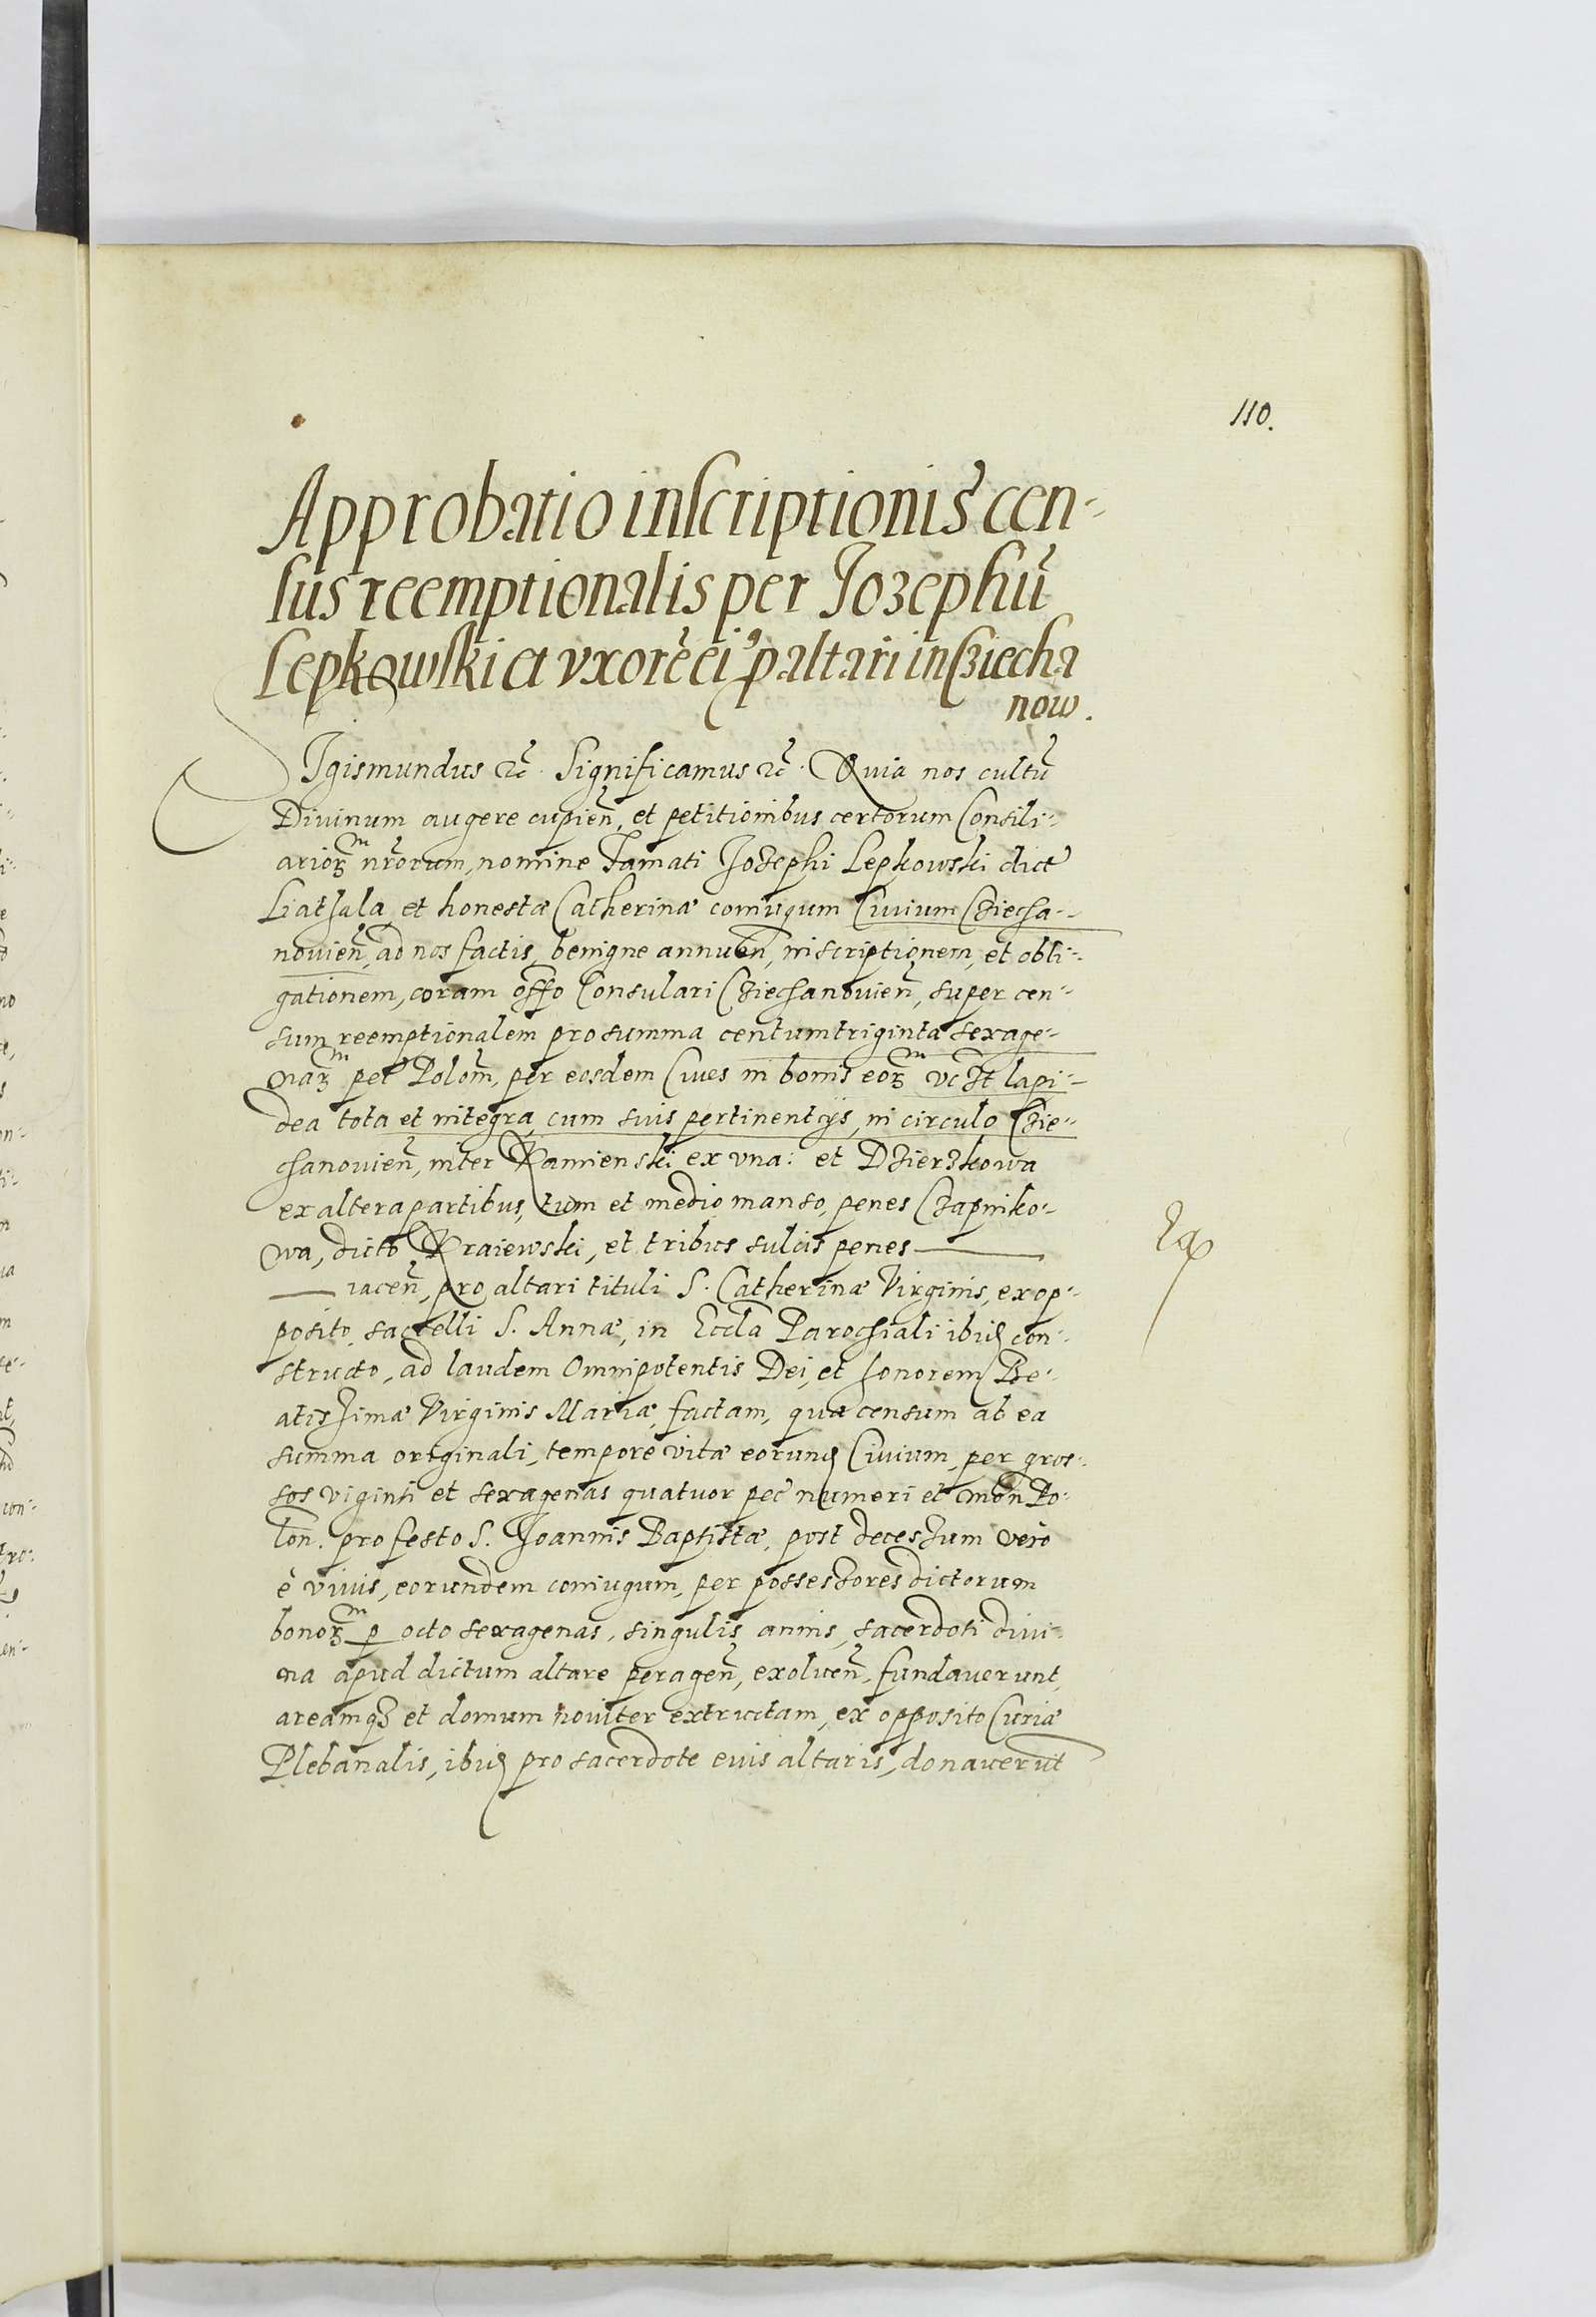 110.
Approbatio inscriptionis cen-
sus reemptionalis per Jozephū
Lepkowski et vxorē eiꝰ ꝑ altari in Cziecha
now.
Sigismundus ꝛc̃. Significamus ꝛc̃. Quia nos cultū
Diuinum augere cupien̄, et petitionibus certorum Consili-
arioꝝᵐ nr̄orum, nomine Famati Jozephi Lepkowski dict
Liatsala et honestæ Catherinæ coniugum Ciuium Cziecha-
nouien̄, ad nos factis, benigne annuen̄, inscriptionem, et obli-
gationem, coram off̄o Consulari Cziechanouien̄, super cen-
sum reemptionalem pro summa centum triginta sexage-
naꝝᵐ pec̄ Polon̄, per eosdem Ciues in bonis eoꝝᵐ vc̄ꝫt lapi-
dea tota et integra, cum suis pertinentijs, in circulo Czie-
chanouien̄, inter Kamienski ex vna: et Dzierzkowa
ex altera partibus, tum et medio manso, penes Czapniko-
wa, dicto Kraiewski, et tribus sulcis penes ———
— iacen̄, pro altari tituli S. Catherinæ Virginis, ex op-
posito sacelli S. Annæ, in Eccl̄a Parochiali ibiꝺ con-
structo, ad laudem Omnipotentis Dei, et honorem Be-
atissimæ Virginis Mariæ, factam, qua censum ab ea
summa originali, tempore vitæ eorunꝺ Ciuium, per gros-
sos viginti et sexagenas quatuor pec̄ numeri et mon̄ Po-
lon̄. pro festo S. Joannis Baptistæ, post decessum vero
è viuis, eorundem coniugum, per possessores dictorum
bonoꝝᵐ ꝑ octo sexagenas, singulis annis, sacerdoti diui-
na apud dictum altare peragen̄, exoluen̄, fundauerunt,
areamqꝫ et domum nouiter extructam, ex opposito Curiæ
Plebanalis, ibiꝺ pro sacerdote eius altaris, donauerūt